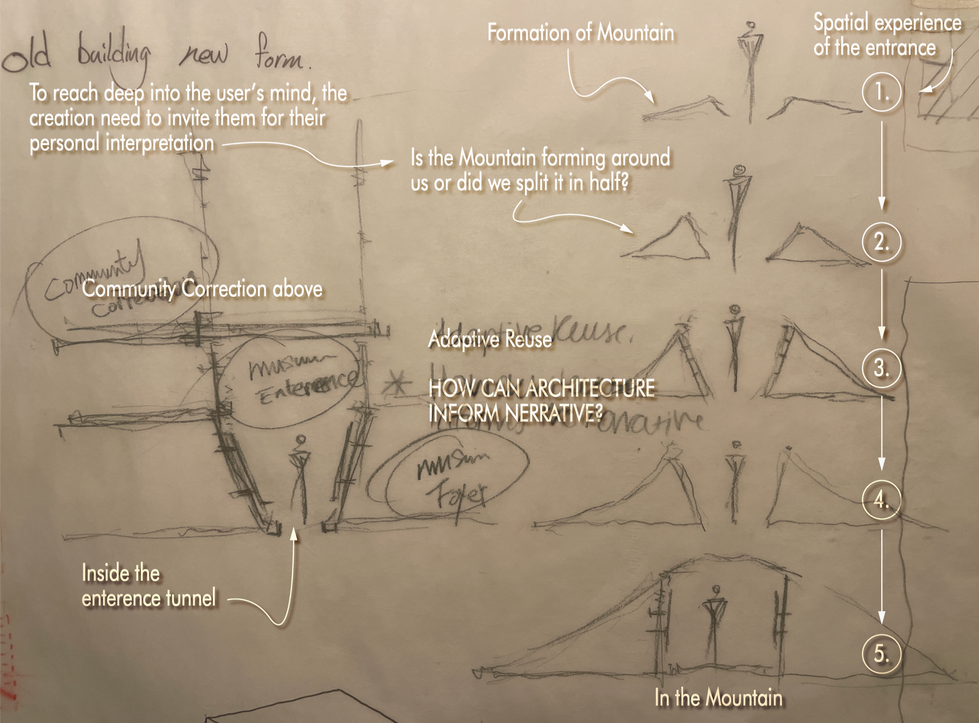 old building new form.
To reach deep into the user's mind, the
creation need to invite them for their
personal interpretation
Formation of Mountain
Spatial experience
of the entrance
1.
Is the Mountain forming around
us or did we split it in half?
2.
Community
Correction
Community Correction above
Adaptive Reuse.
Adaptive Reuse
3.
musium
Enterence
HOW CAN ARCHITECTURE
INFORM NERRATIVE?
narrative
musium
Foyer
4.
Inside the
enterence tunnel
5.
In the Mountain